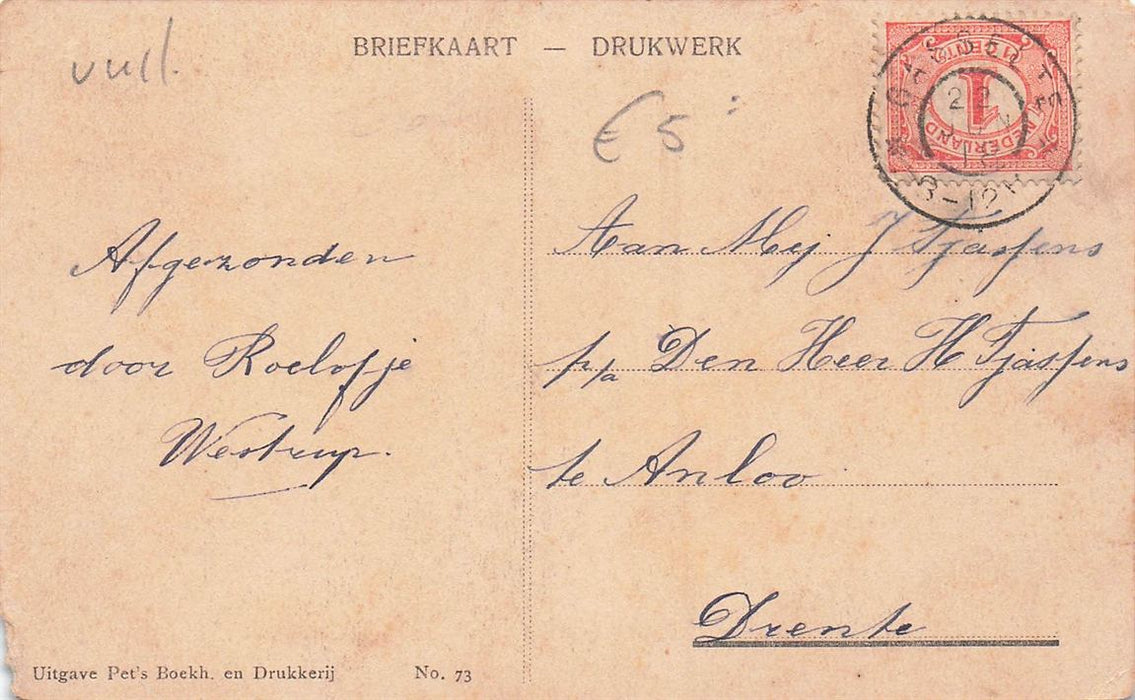 vull.
BRIEFKAART — DRUKWERK
€ 5
1
CENT
NEDERLAND
GASSELTE
22
8-12
Afgezonden
door Roelofje
Westrup.
Aan Mej J Tjassens
p/a Den Heer H Tjassens
te Anloo
Drente
Uitgave Pet's Boekh. en Drukkerij No. 73